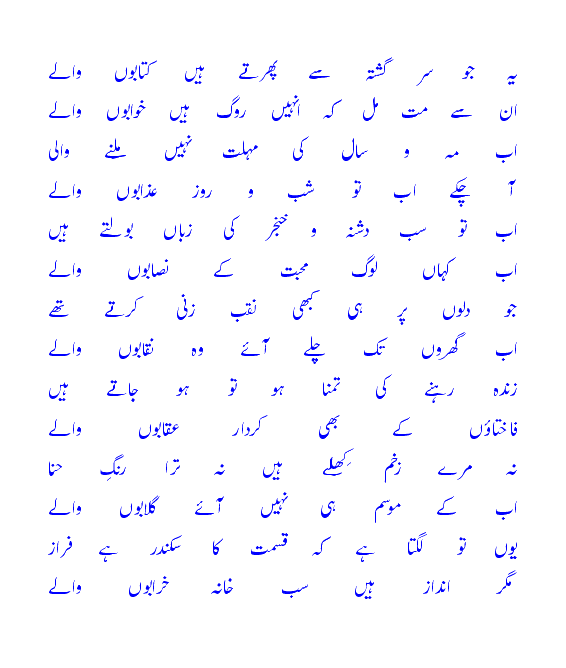 یہ جو سر گشتہ سے پھرتے ہیں کتابوں والے
ان سے مت مل کہ انہیں روگ ہیں خوابوں والے
اب مہ و سال کی مہلت نہیں ملنے والی
آ چکے اب تو شب و روز عذابوں والے
اب تو سب دشنہ و خنجر کی زباں بولتے ہیں
اب کہاں لوگ محبت کے نصابوں والے
جو دلوں پر ہی کبھی نقب زنی کرتے تھے
اب گھروں تک چلے آئے وہ نقابوں والے
زندہ رہنے کی تمنا ہو تو ہو جاتے ہیں
فاختاؤں کے بھی کردار عقابوں والے
نہ مرے زخم کِھلے ہیں نہ ترا رنگِ حنا
اب کے موسم ہی نہیں آئے گلابوں والے
یوں تو لگتا ہے کہ قسمت کا سکندر ہے فراز
مگر انداز ہیں سب خانہ خرابوں والے